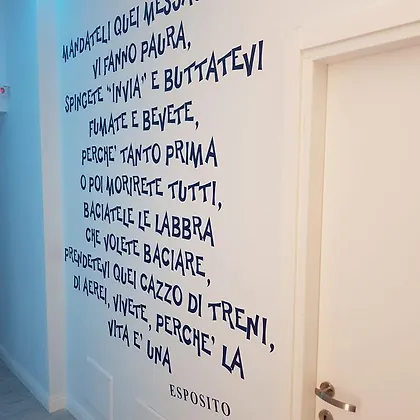 MANDATELI QUEI MESSAG
VI FANNO PAURA,
SPINGETE "INVIA" E BUTTATEVI
FUMATE E BEVETE,
PERCHE' TANTO PRIMA
O POI MORIRETE TUTTI,
BACIATELE LE LABBRA
CHE VOLETE BACIARE,
PRENDETEVI QUEI CAZZO DI TRENI,
DI AEREI, VIVETE, PERCHE' LA
VITA E' UNA
ESPOSITO